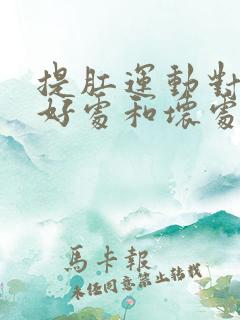 提肛運動對
好處和壞處
馬卡報
未經同意禁止轉載